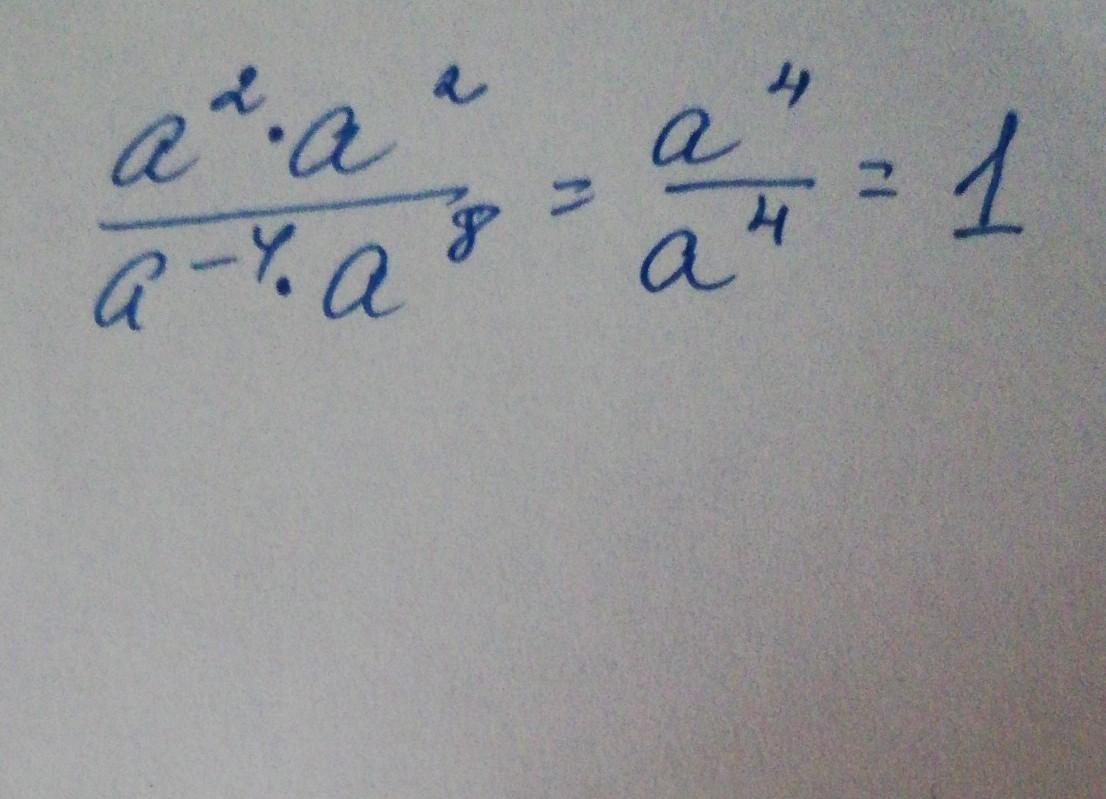 a² · a² / a⁻⁴ · a⁸ = a⁴ / a⁴ = 1